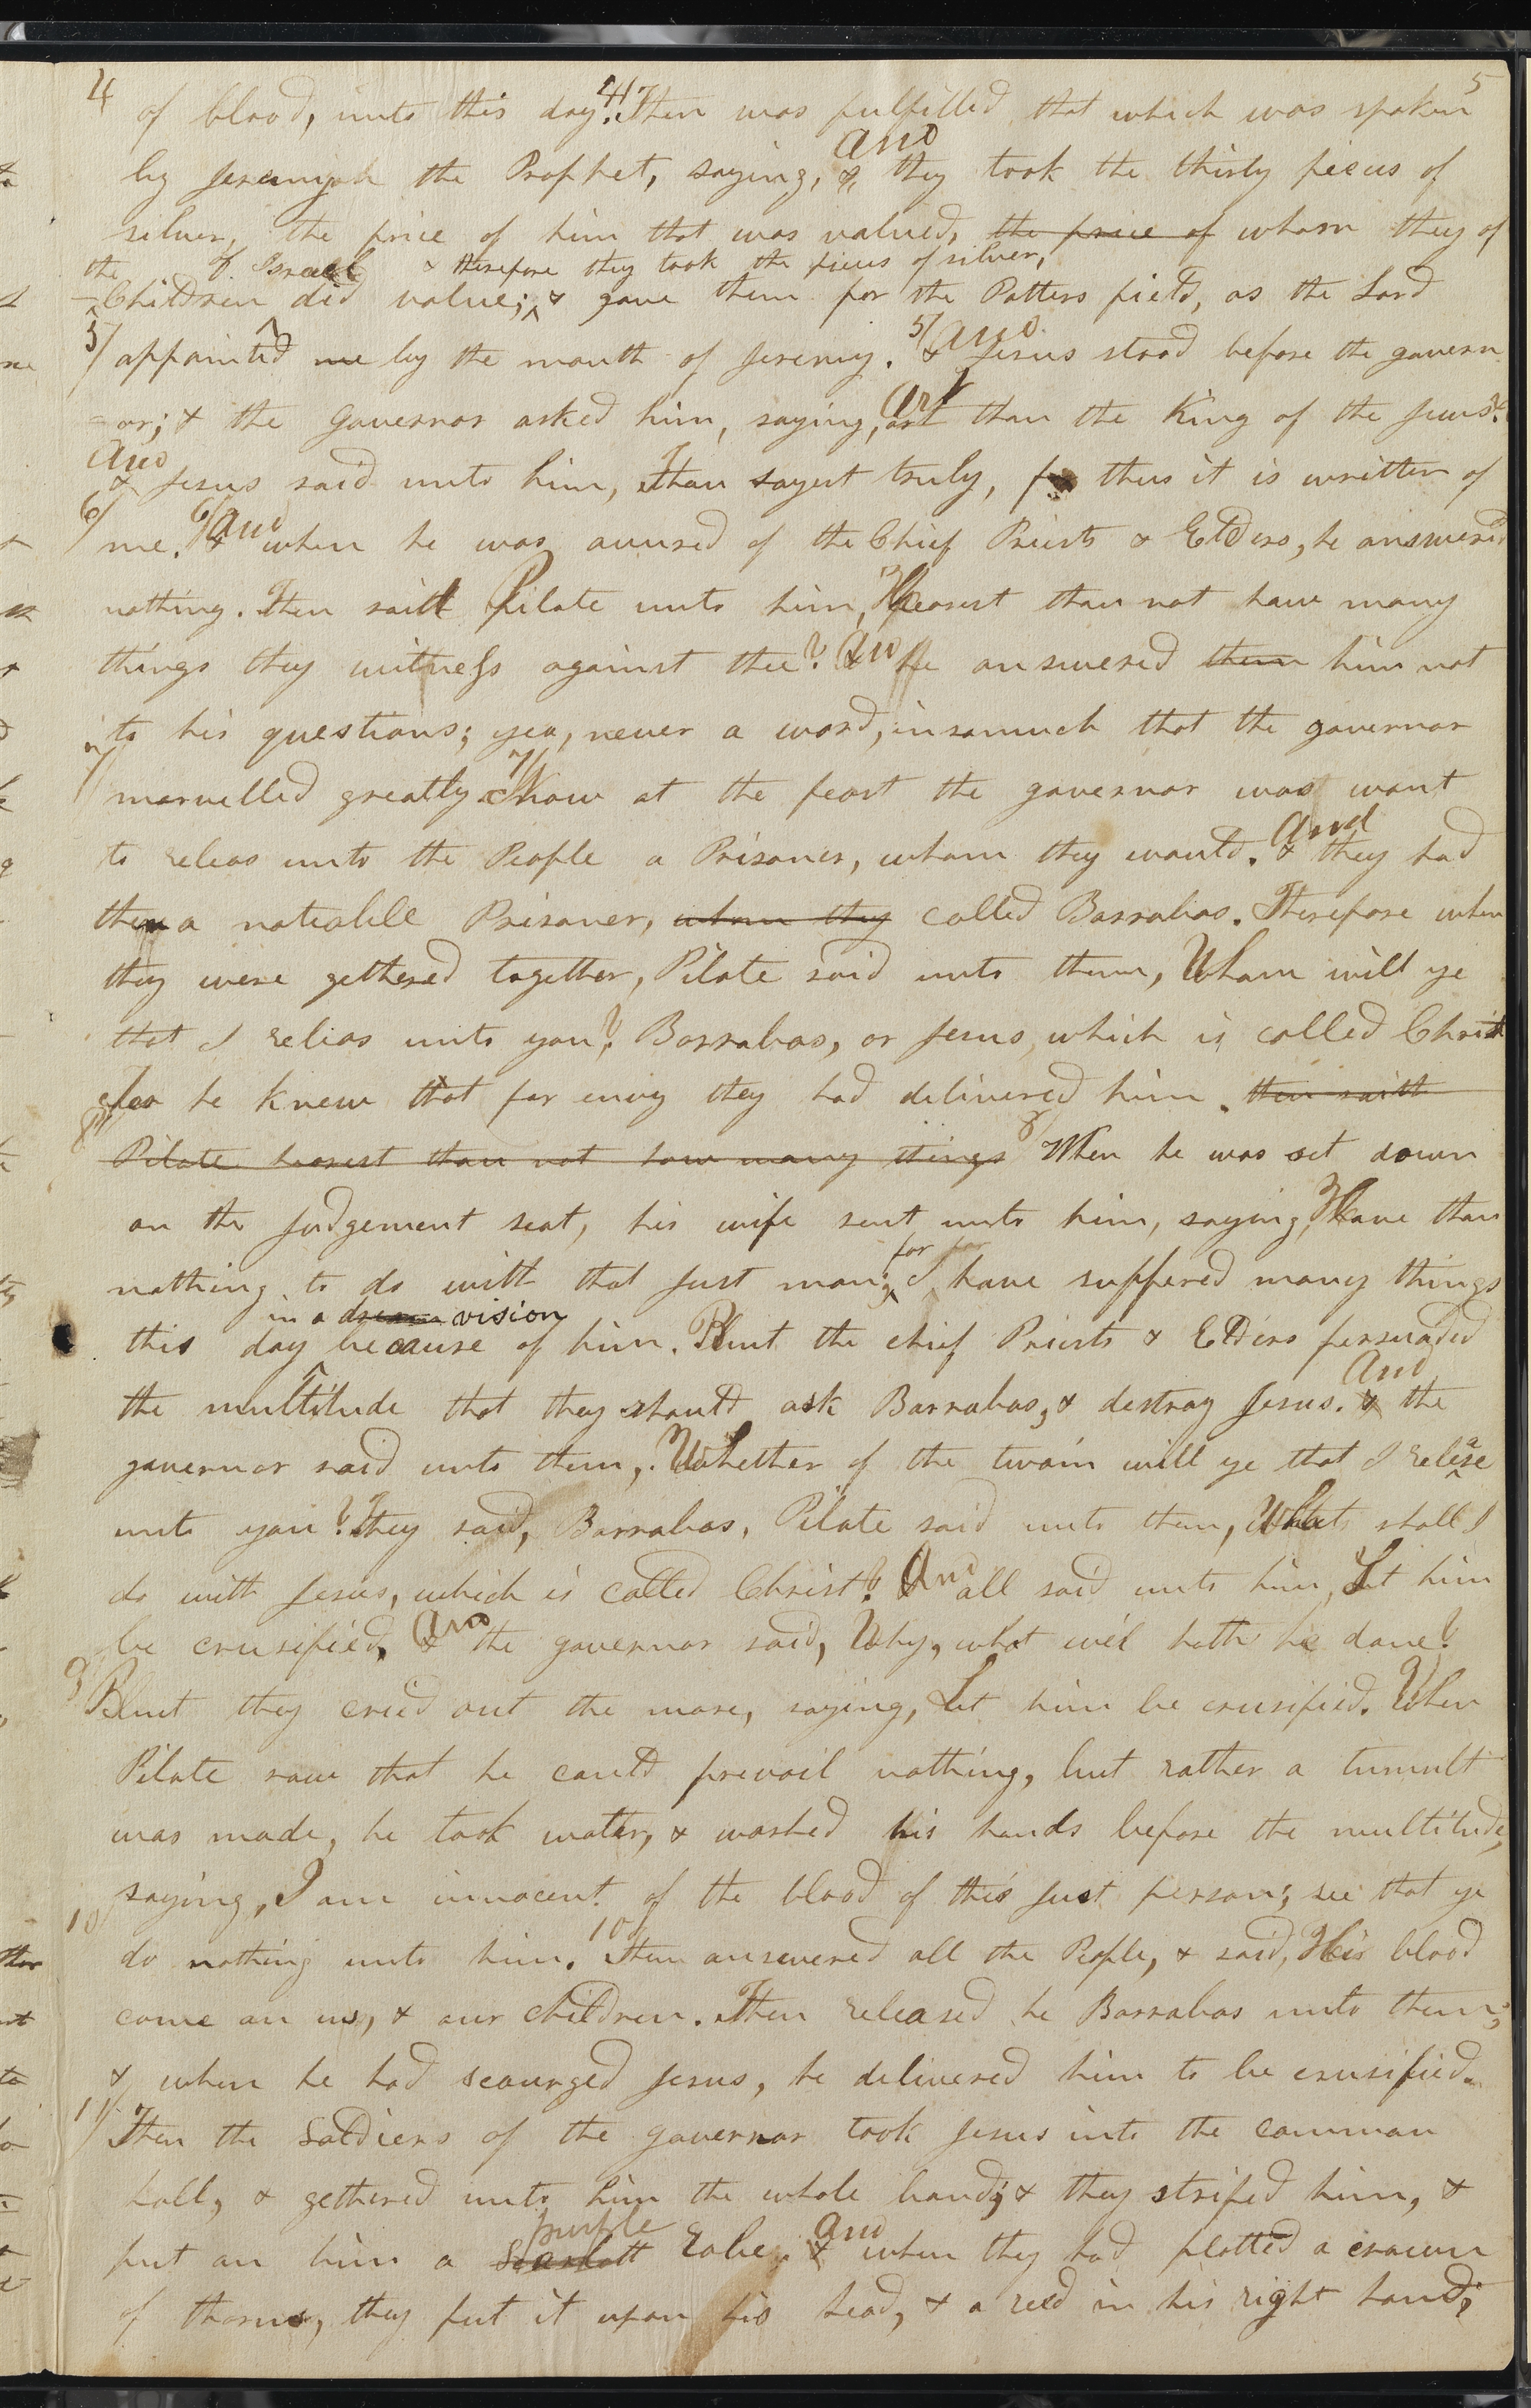 4 of blood, unto this day. 4/ Then was fulfilled that which was spoken 5
by Jeremiah the Prophet, saying, & and they took the thirty pieces of
silver, the price of him that was valued, the price of whom they of
the of Israel & therefore they took the pieces of silver,
Children did value; & gave them for the Potters field, as the Lord
5/ appointed me by the mouth of Jeremy. 5/ & and Jesus stood before the govern
=or; & the Governor asked him, saying, art thou the King of the Jews?
and
& Jesus said unto him, Thou sayest truly, for thus it is written of
6/ me. 6/ & and when he was accused of the Chief Priests & Elders, he answered
nothing. Then saith Pilate unto him, Hearest thou not how many
things they witness against thee? & and he answered them him not
to his questions; yea, never a word, insomuch that the governor
7/ marvelled greatly 7/ Now at the feast the governor was wont
to releas unto the People a Prisoner, whom they would. & and they had
then a notiable Prisoner, whom they called Barrabas. Therefore when
they were gethered together, Pilate said unto them, Whom will ye
that I relias unto you? Barrabas, or Jesus, which is called Christ
for he knew that for envy they had delivered him. then saith
8/ Pilate hearest thou not how many things 8/ When he was set down
on the Judgement seat, his wife sent unto him, saying, Have thou
nothing to do with that Just man; for I have suffered many things
in a dream vision
this day because of him. But the chief Priests & Elders persuaded
the multitude that they should ask Barrabas, & destroy Jesus. & and the
governor said unto them, Whether of the twain will ye that I release
unto you? They said, Barrabas, Pilate said unto them, What shall I
do with Jesus, which is called Christ? & And all said unto him, Let him
be crusified, & and the governor said, Why, what evil hath he done?
9/ But they cried out the more, saying, Let him be crusified. When
Pilate saw that he could prevail nothing, but rather a tumult
was made, he took water, & washed his hands before the multitude,
saying, I am innocent of the blood of this Just person; see that ye
10/ do nothing unto him. 10/ Then answered all the People, & said, His blood
come on us, & our children. Then released he Barrabas unto them;
& when he had scourged Jesus, he delivered him to be crusified.
11/ Then the Soldiers of the governor took Jesus into the common
hall, & gethered unto him the whole band; & they striped him, &
put on him a Scarlett purple Robe. & and when they had platted a crown
of thorns, they put it upon his head, & a reed in his right hand;